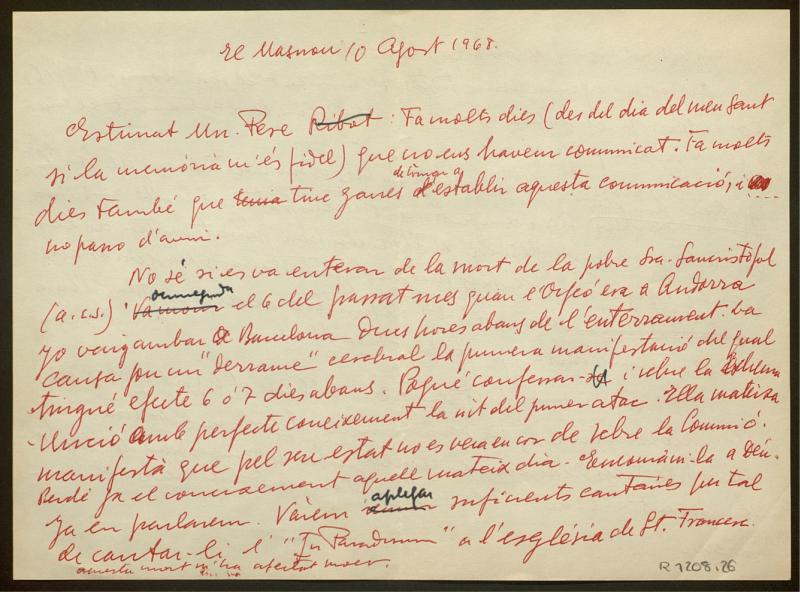 El Masnou 10 Agost 1968.
Estimat Mn. Pere Ribot: Fa molts dies (des del dia del meu Sant
si la memòria m'és fidel) que no ens havem comunicat. Fa molts
de tornar a
dies també que tenia tinc ganes d'establir aquesta comunicació, i
no passo d'avui.
No sé si es va enterar de la mort de la pobre Sra. Sancristòfol
(a.c.s.) el 6 del passat mes quan l'Orfeó era a Andorra
Jo vaig arribar a Barcelona dues hores abans de l'enterrament. La
causa fou un "derrame" cerebral la primera manifestació del qual
tingué efecte 6 ó 7 dies abans. Pogué confessar i rebre la Extrema
Unció amb perfecte coneixement la nit del primer atac. Ella mateixa
manifestà que pel seu estat no es veia en cor de rebre la Comunió.
Perdé ja el coneixement aquell mateix dia. Encomàni-la a Déu.
Ja en parlarem. Vàrem aplegar suficients cantaires per tal
de cantar-li l'"In Paradisum" a l'església de St. Francesc.
aquesta mort m'ha afectat
R 1208,26